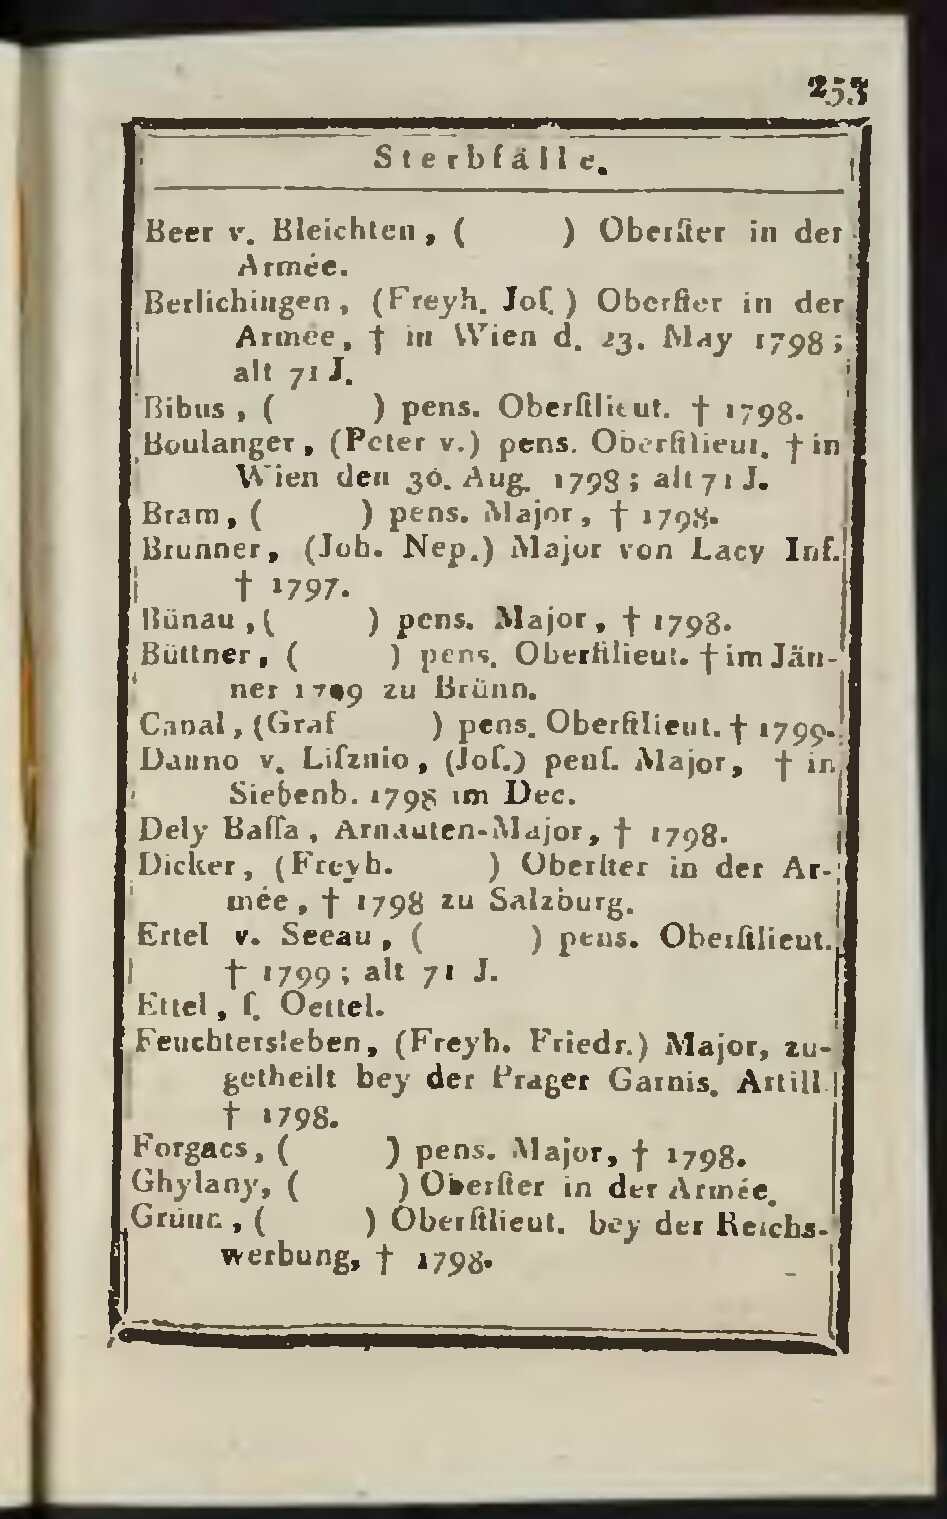 253
Sterbfälle.
Beer v. Bleichten, (        ) Oberſter in der
Armée.
Berlichingen, (Freyh. Joſ.) Oberſter in der
Armée, † in Wien d. 23. May 1798;
alt 71 J.
Bibus, (        ) pens. Oberſtlieut. † 1798.
Boulanger, (Peter v.) pens. Oberſtlieut. † in
Wien den 30. Aug. 1798; alt 71 J.
Bram, (        ) pens. Major, † 1798.
Brunner, (Joh. Nep.) Major von Lacy Inf.
† 1797.
Bünau, (        ) pens. Major, † 1798.
Büttner, (        ) pens. Oberſtlieut. † im Jän-
ner 1799 zu Brünn.
Canal, (Graf        ) pens. Oberſtlieut. † 1799.
Danno v. Liſznio, (Joſ.) penſ. Major, † in
Siebenb. 1798 im Dec.
Dely Baſſa, Arnauten-Major, † 1798.
Dicker, (Freyh.        ) Oberſter in der Ar-
mée, † 1798 zu Salzburg.
Ertel v. Seeau, (        ) pens. Oberſtlieut.
† 1799; alt 71 J.
Ettel, ſ. Oettel.
Feuchtersleben, (Freyh. Friedr.) Major, zu-
getheilt bey der Prager Garnis. Artill.
† 1798.
Forgacs, (        ) pens. Major, † 1798.
Ghylany, (        ) Oberſter in der Armée.
Grünn, (        ) Oberſtlieut. bey der Reichs-
werbung, † 1798.